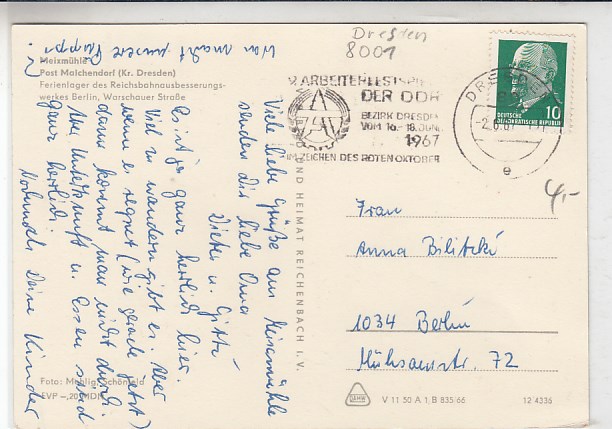 Dresden
8001
Meixmühle
Post Malchendorf (Kr. Dresden)
Ferienlager des Reichsbahnausbesserungs-
werkes Berlin, Warschauer Straße
Was macht unsere Puppi
?
Viele liebe Grüße aus Meixmühle
senden dir liebe Oma
Dieter u. Gitti
Es ist ja ganz herrlich hier.
Viel zu wandern gibt es. Aber
wenn es regnet (wie gerade jetzt)
dann kommt man nicht durch.
Die Unterkunft u. Essen sind
ganz herrlich.
Nochmals Deine Kinder
9. ARBEITERFESTSPIELE
DER DDR
BEZIRK DRESDEN
VOM 16.-18. JUNI
1967
IM ZEICHEN DES ROTEN OKTOBER
DRESDEN
-2.6.67
e
DEUTSCHE
DEMOKRATISCHE REPUBLIK
10
4,-
UND HEIMAT REICHENBACH I. V.
Frau
Anna Bilitzki
1034 Berlin
Mühsamstr. 72
Foto: Mehlig, Schönfeld
EVP -,20 MDN
V 11 50 A 1, B 835/66
12 4336